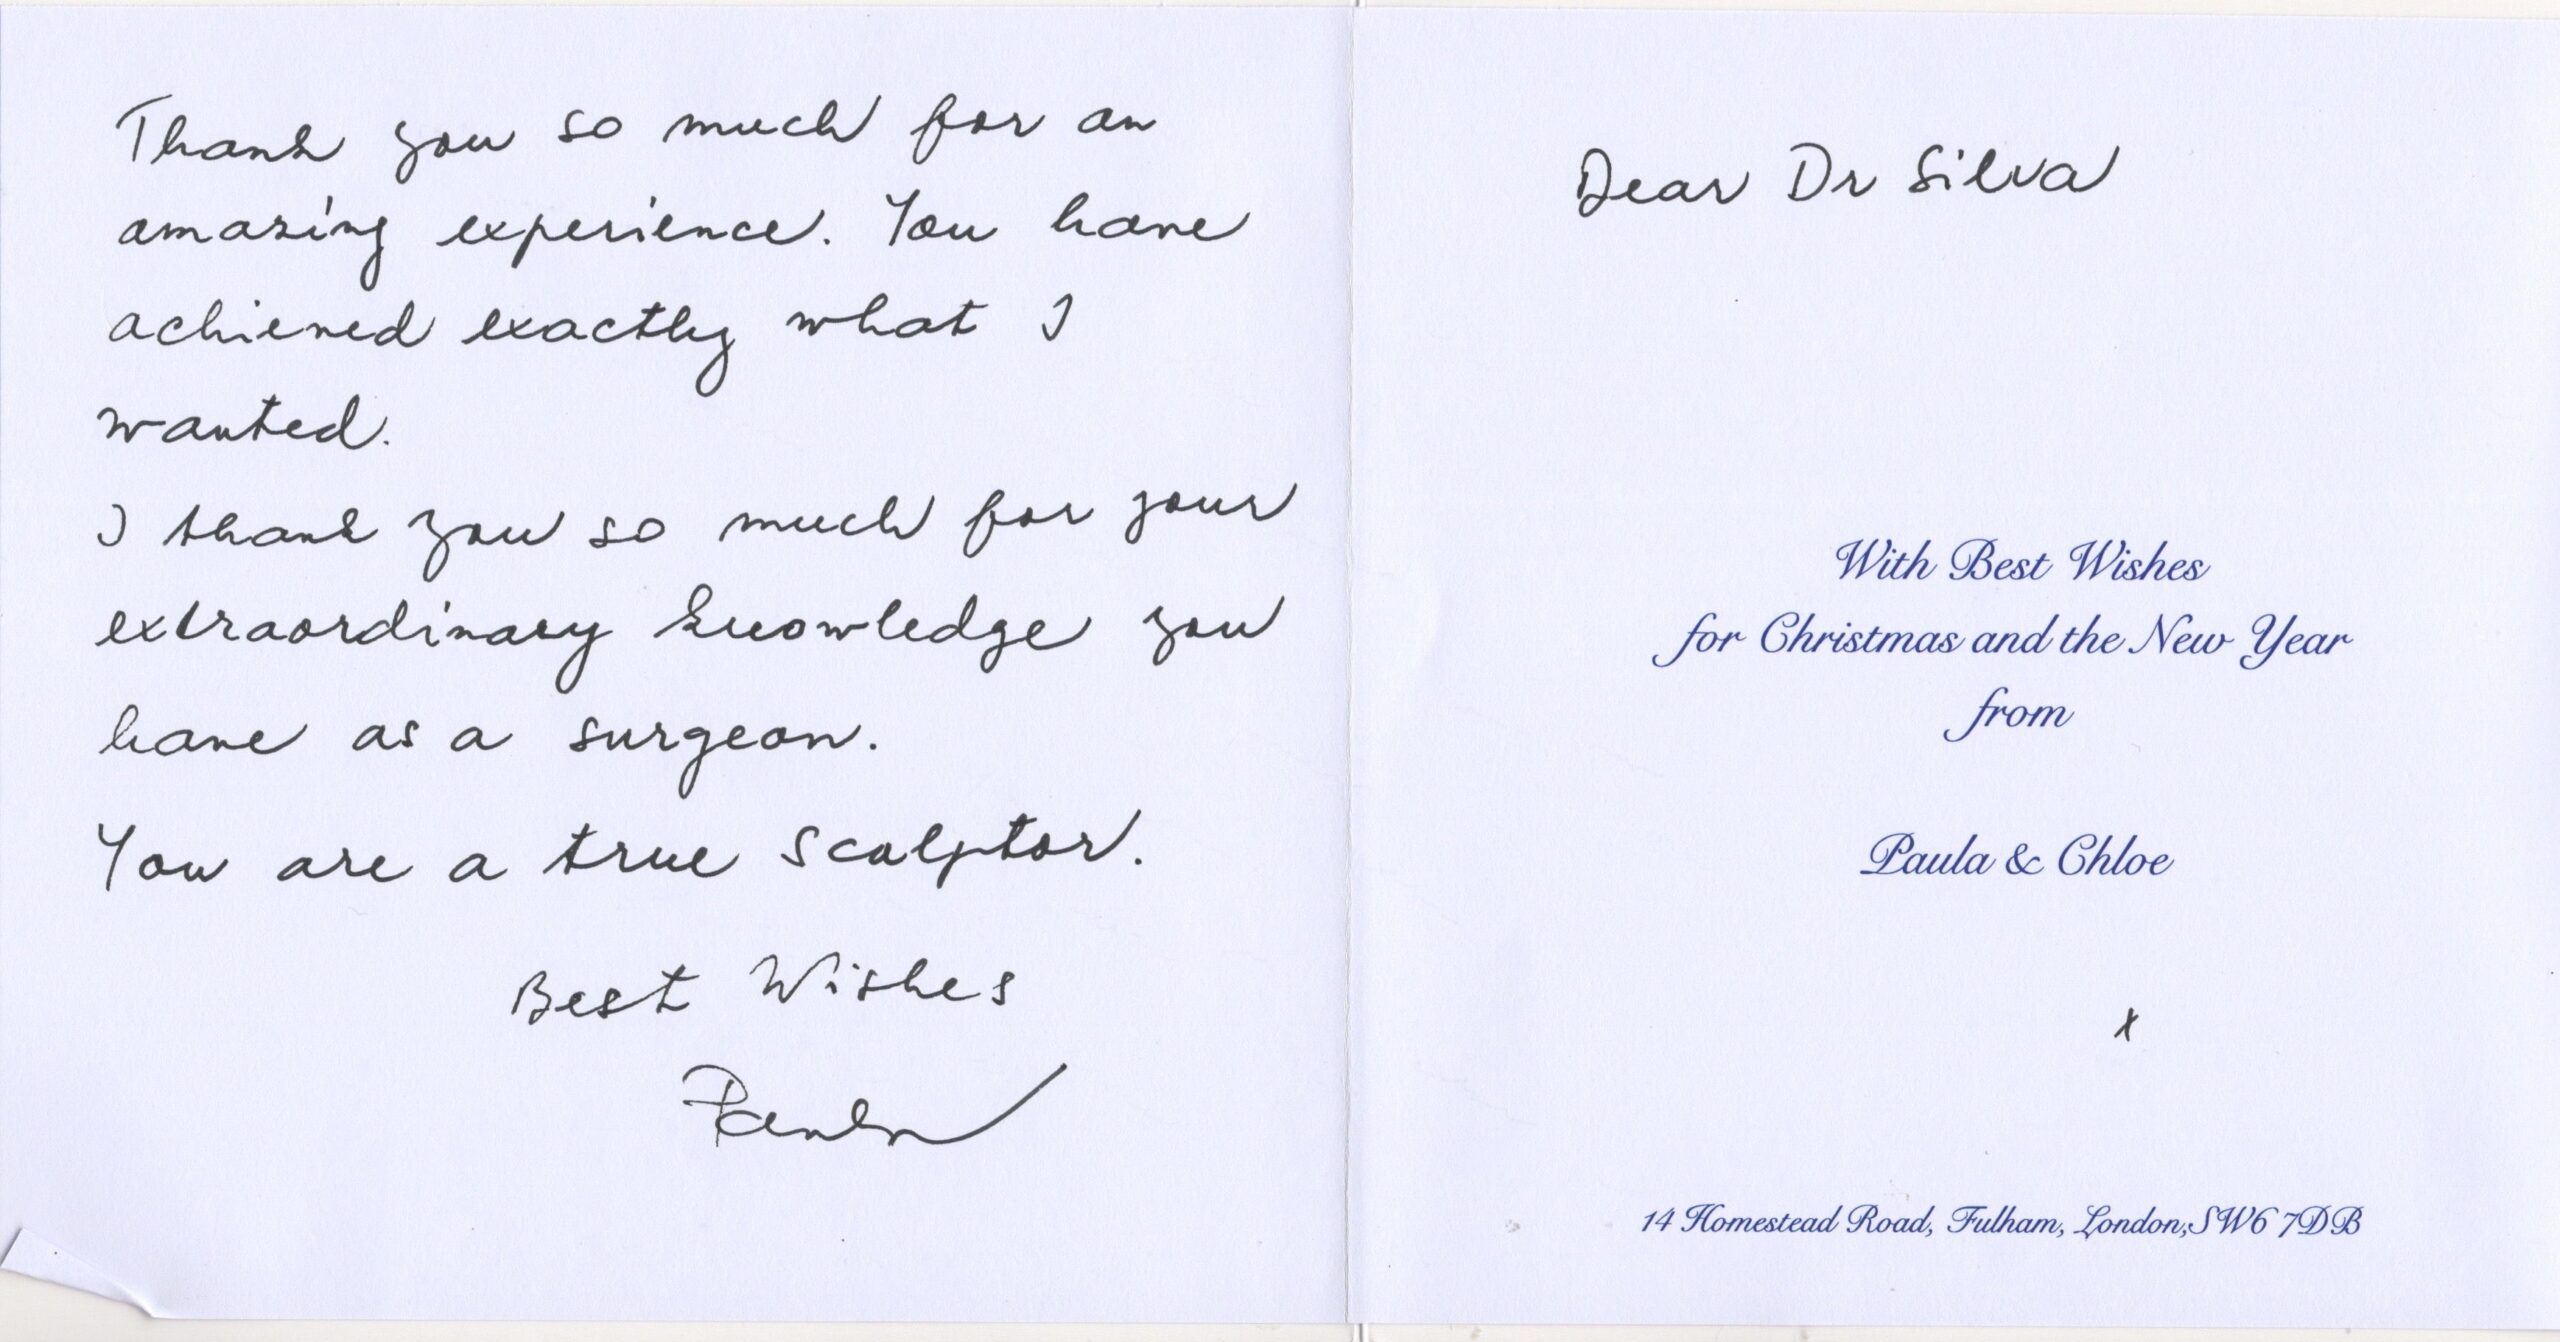 Thank you so much for an
amazing experience. You have
achieved exactly what I
wanted.
I thank you so much for your
extraordinary knowledge you
have as a surgeon.
You are a true sculptor.
Best Wishes
Paula
Dear Dr Silva
With Best Wishes
for Christmas and the New Year
from
Paula & Chloe
x
14 Homestead Road, Fulham, London,SW6 7DB